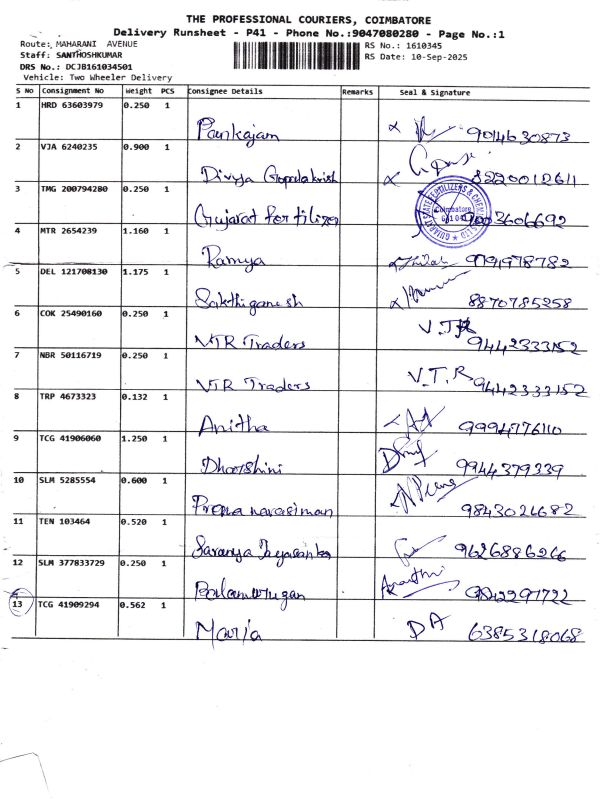 THE PROFESSIONAL COURIERS, COIMBATORE
Delivery Runsheet - P41 - Phone No.:9047080280 - Page No.:1
Route: MAHARANI AVENUE RS No.: 1610345
Staff: SANTHOSHKUMAR RS Date: 10-Sep-2025
DRS No.: DCJB161034501
Vehicle: Two Wheeler Delivery
S No Consignment No Weight PCS Consignee Details Remarks Seal & Signature
1 HRD 63603979 0.250 1
Pankajam 9014630873
2 VJA 6240235 0.900 1
Divya Gopalakrish 8220012611
3 TMG 200794280 0.250 1
Gujarat fertilizer 9003606692
4 MTR 2654239 1.160 1
Ramya 9791978782
5 DEL 121708130 1.175 1
Sakthiganesh 8870785258
6 COK 25490160 0.250 1
VTR Traders V.T.R 9442333152
7 NBR 50116719 0.250 1
VTR Traders V.T.R 9442333152
8 TRP 4673323 0.132 1
Anitha 9994776110
9 TCG 41906060 1.250 1
Dhorshini 9944379339
10 SLM 5285554 0.600 1
Prema narasiman 9843026682
11 TEN 103464 0.520 1
Saranya 9626886266
12 SLM 377833729 0.250 1
Balamurugan 9842297722
13 TCG 41909294 0.562 1
Maria DA 6385318068